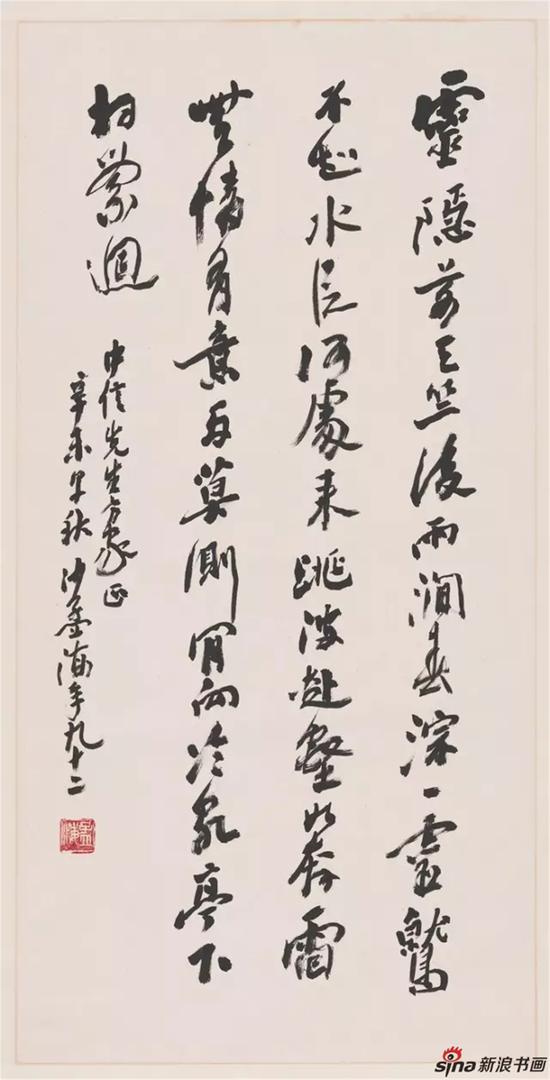 靈隱前天竺後兩澗春淙一靈鷲
不知水從何處来跳波赴壑如奔雷
無情有意兩莫測肎向冷泉亭下
相縈迴
中信先生方家正
辛未早秋沙孟海年九十二
sina新浪书画